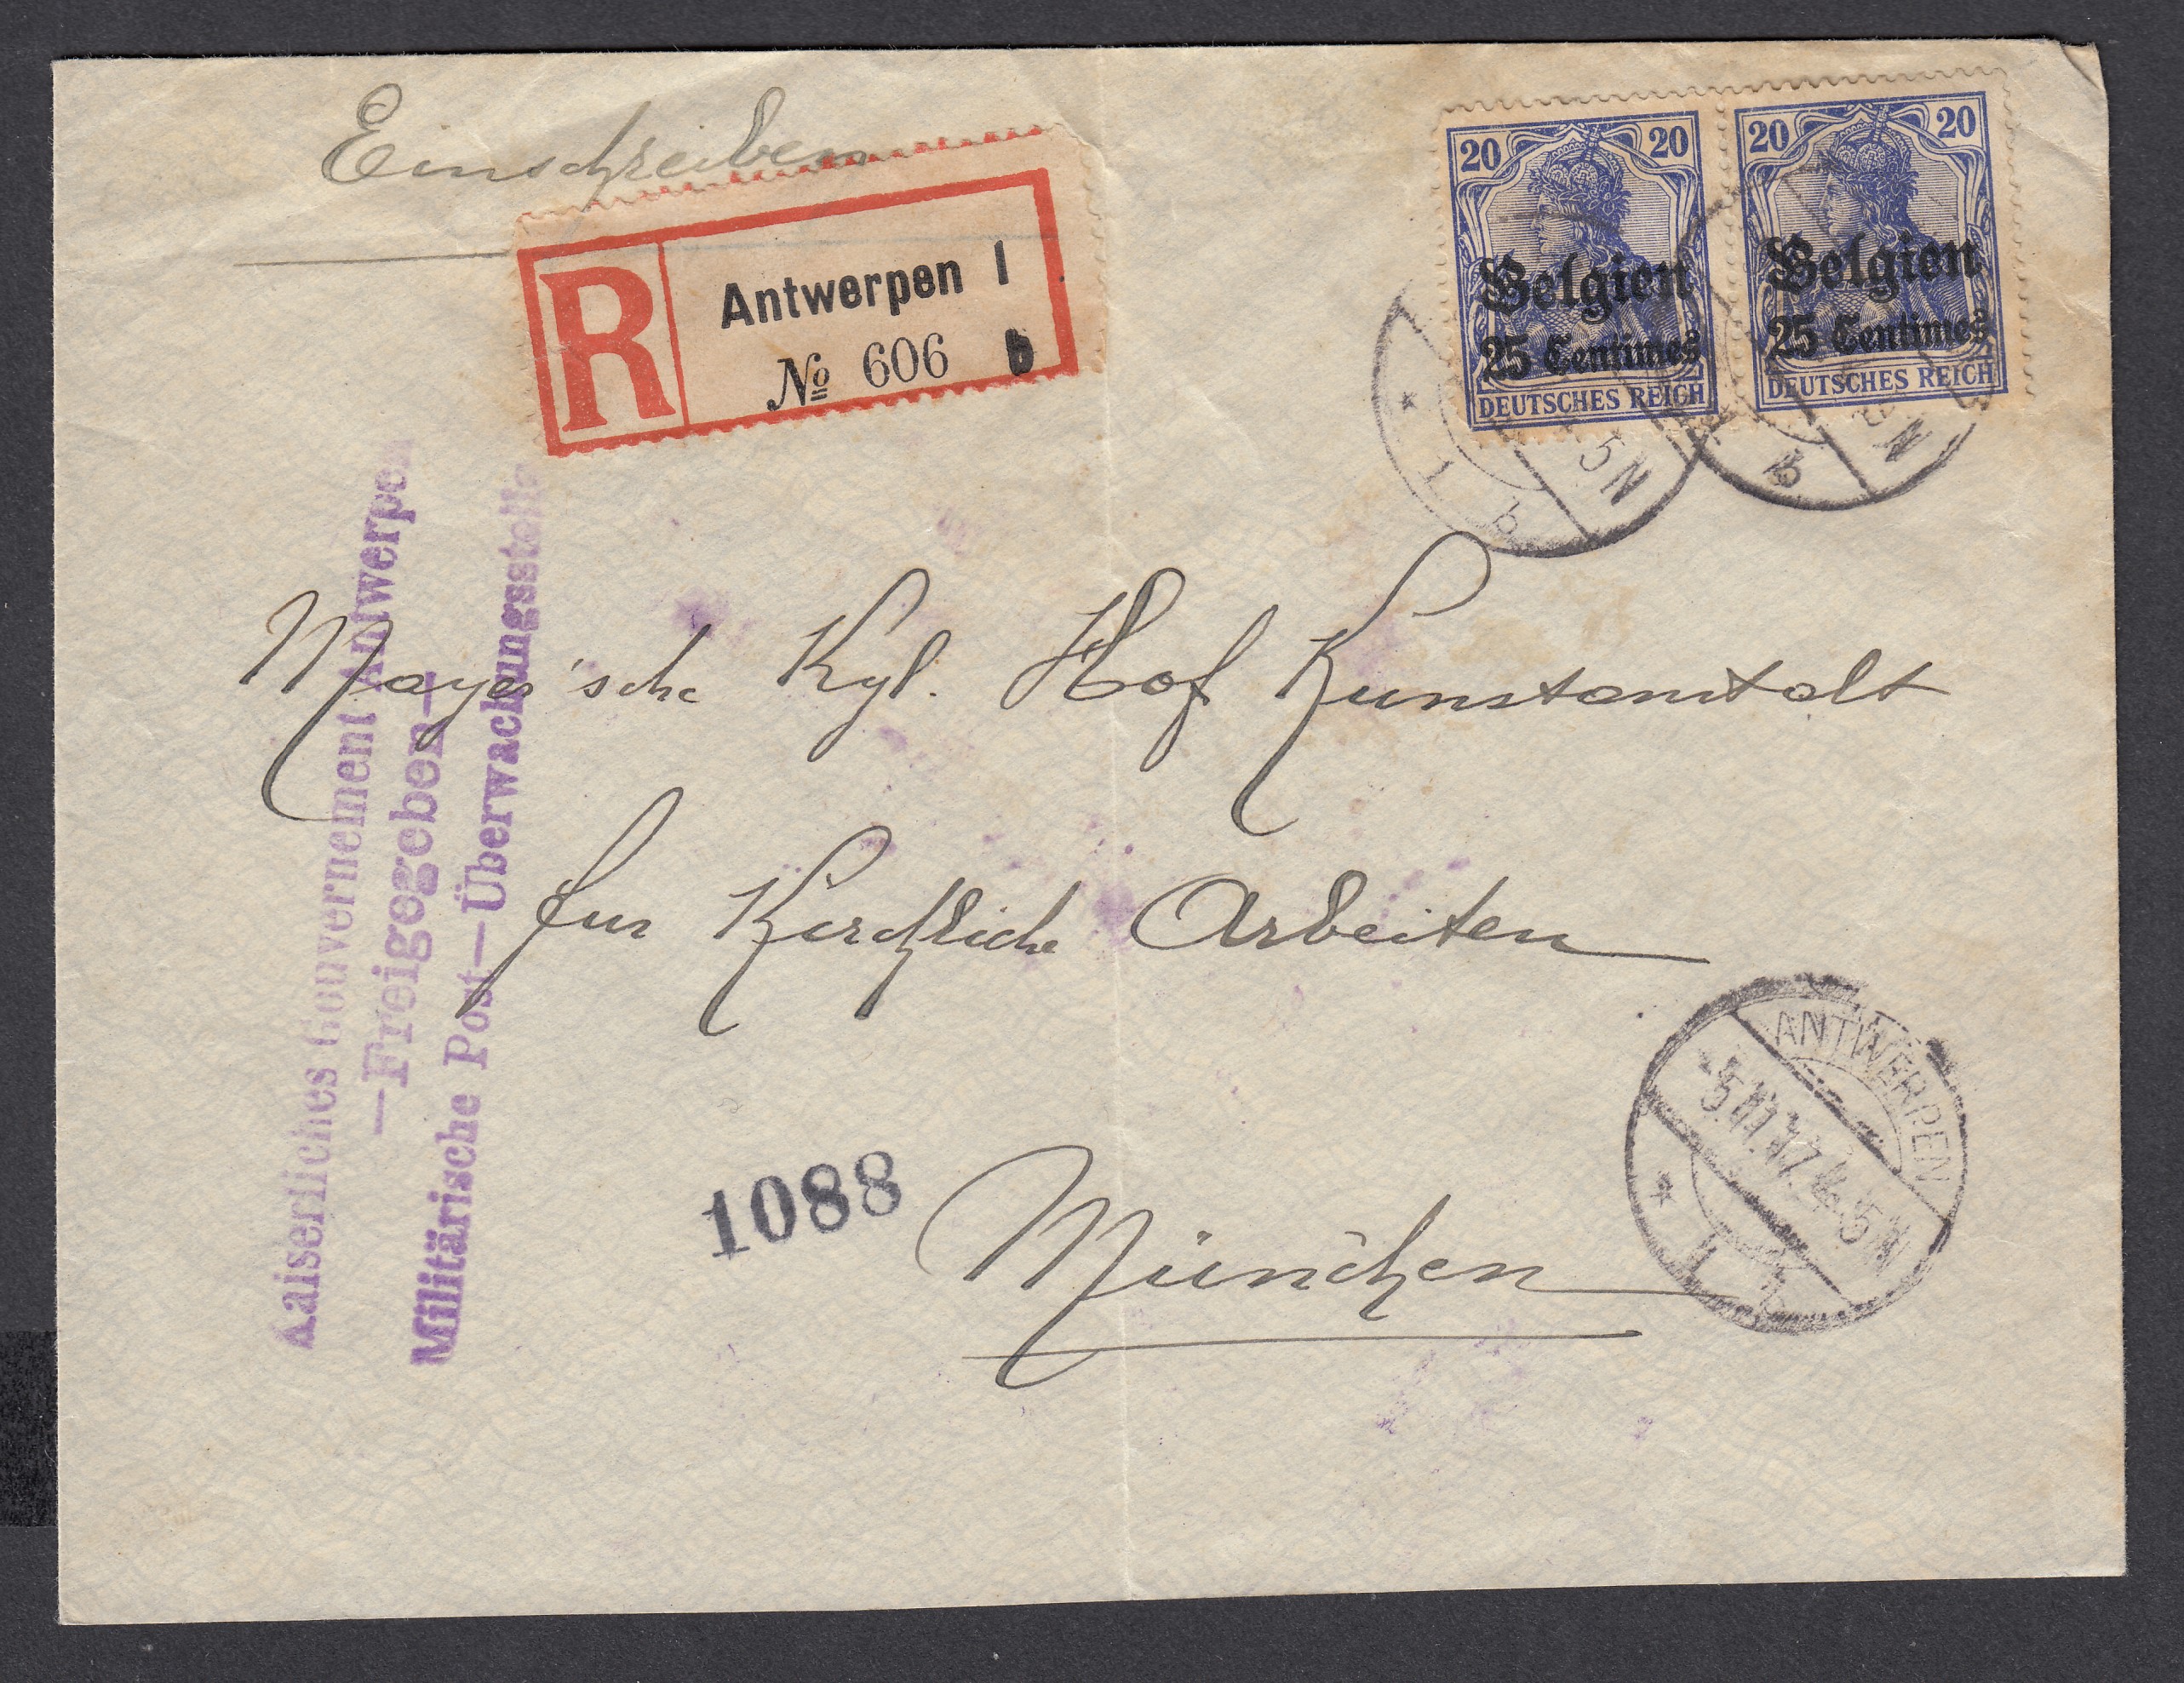 Einschreiben
R
Antwerpen 1
No 606 b
20 20
Belgien
25 Centimes
DEUTSCHES REICH
20 20
Belgien
25 Centimes
DEUTSCHES REICH
5N
1 b
N
b
Kaiserliches Gouvernement Antwerpen
—Freigegeben—
Militärische Post—Überwachungsstelle
Mayer'sche Kgl. Hof Kunstanstalt
fur Kirchliche Arbeiten
1088
München
ANTWERPEN
4-5N
* 1 b